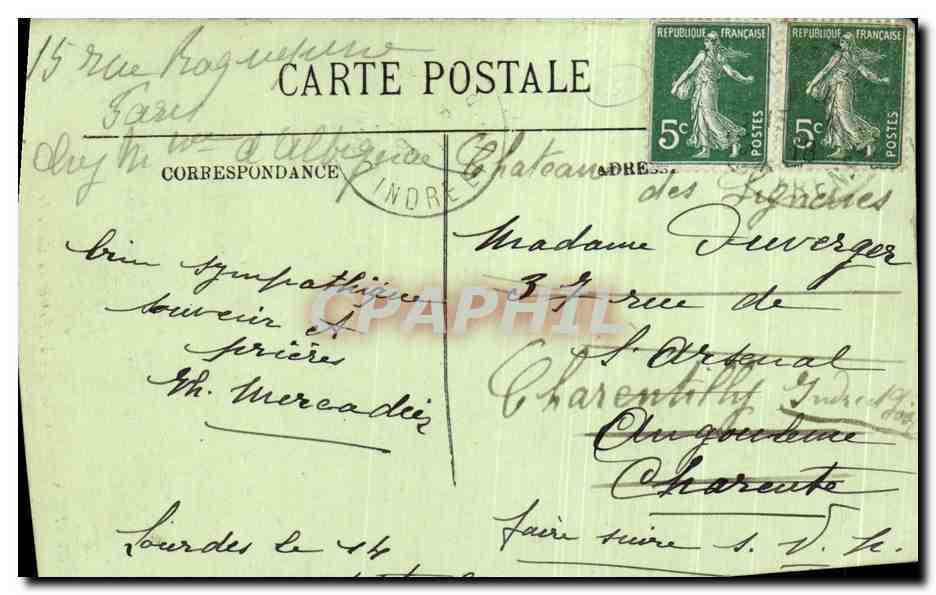 15 rue Roquépine
Paris
chez Mme Vve d'Albignac
CARTE POSTALE
REPUBLIQUE FRANÇAISE
5c POSTES
REPUBLIQUE FRANÇAISE
5c POSTES
CORRESPONDANCE
INDRE
ADRESSE
Chateau
des Ligneries
Madame Duverger
37 rue de
l'Arsenal
Charentilly Indre &
Angouleme
Charente
faire suivre s. v. p.
bien sympathique
souvenir et
prières
Th. Mercadier
Lourdes le 14
CPAPHIL